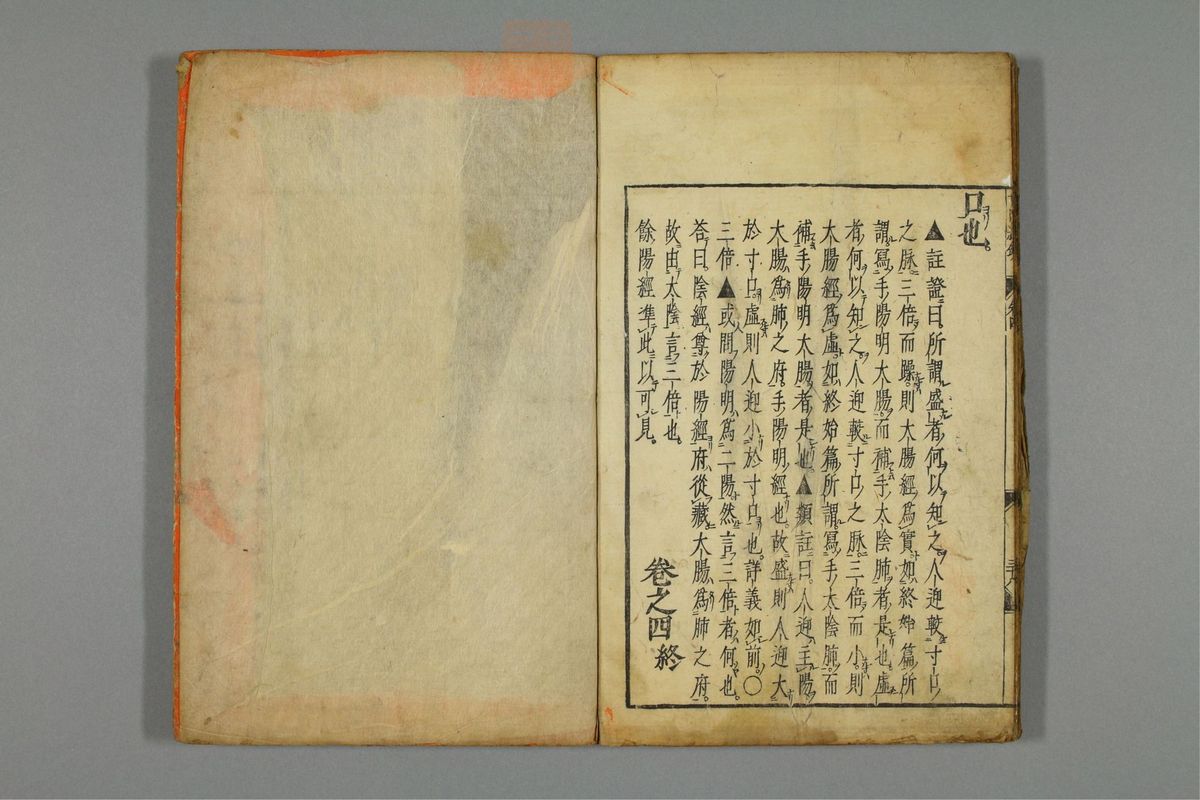 口也。
▲註證曰所謂盛者何以知之人迎較寸口
之脉三倍而躁。則大腸經爲實如終始篇所
謂寫手陽明大腸。而補手太陰肺者是也虛
者何以知之。人迎較寸口之脉。三倍而小。則
大腸經爲虛。如終始篇所謂寫手太陰肺。而
補手陽明大腸者是也▲類註曰。人迎主陽。
大腸爲肺之府。手陽明經也。故盛則人迎大
於寸口。虛則人迎小於寸口也。詳義如前。○
三倍▲或問陽明爲二陽然言三倍者何也。
答曰。陰經尊於陽經府從藏大腸爲肺之府。
故由太陰言三倍也。
餘陽經準此以可見。
卷之四終